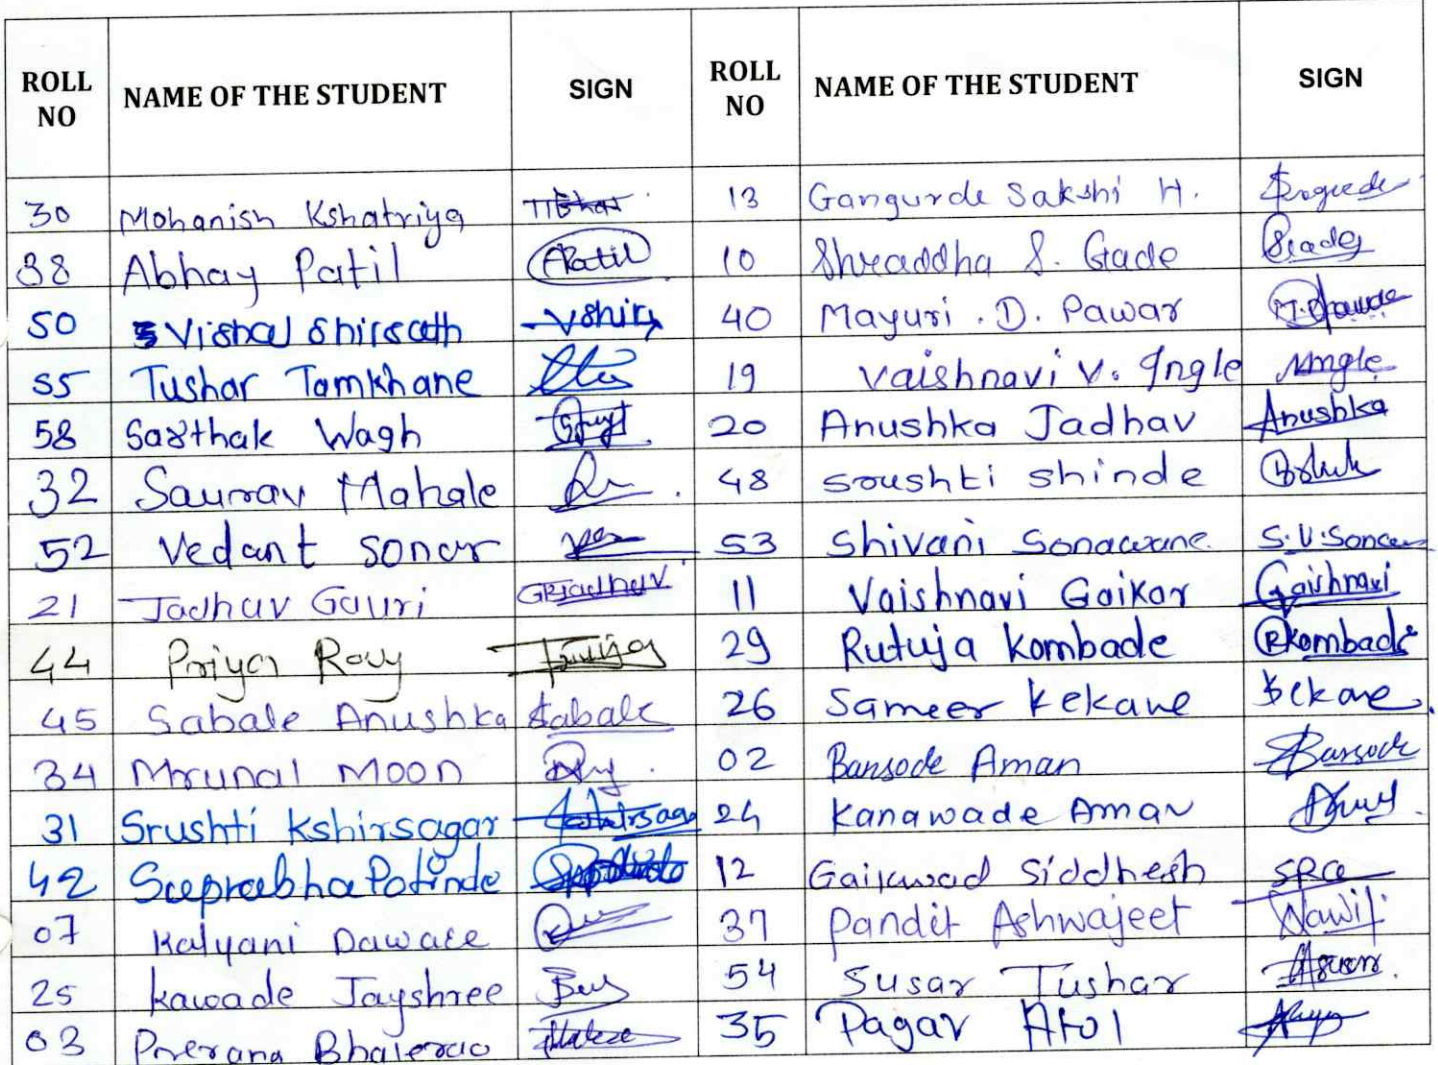 ROLL NO NAME OF THE STUDENT SIGN ROLL NO NAME OF THE STUDENT SIGN
30 Mohanish Kshatriya 13 Gangurde Sakshi H.
38 Abhay Patil APatil 10 Shraddha S. Gade
50 Vishal Shirsath Vshir 40 Mayuri . D. Pawar
55 Tushar Tamkhane 19 Vaishnavi V. Ingle
58 Sarthak Wagh 20 Anushka Jadhav Anushka
32 Saurav Mahale 48 Srushti Shinde
52 Vedant Sonar 53 Shivani Sonawane
21 Jadhav Gauri GRJadhav 11 Vaishnavi Gaikar
44 Priya Roy 29 Rutuja Kombade RKombade
45 Sabale Anushka Sabale 26 Sameer Kekane Kekane
34 Mrunal Moon 02 Bansode Aman Bansode
31 Srushti Kshirsagar 24 Kanawade Aman
42 Suprabha Potinde 12 Gaikwad Siddhesh
07 Kalyani Daware 37 Pandit Ashwajeet
25 Kawade Jayshree 54 Susar Tushar
03 Prerana Bhalerao 35 Pagar Atul